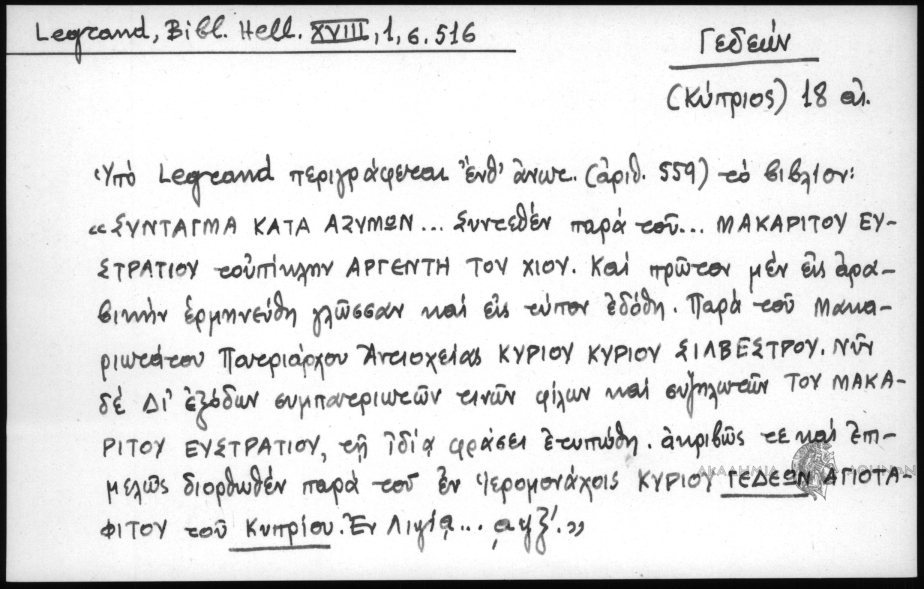 Legrand, Bibl. Hell. XVIII, 1, σ. 516
Γεδεών
(Κύπριος) 18 αἰ.
Ὑπό Legrand περιγράφεται ἔνθ' ἀνωτ. (ἀριθ. 559) τό βιβλίον:
«ΣΥΝΤΑΓΜΑ ΚΑΤΑ ΑΖΥΜΩΝ... Συντεθέν παρά τοῦ... ΜΑΚΑΡΙΤΟΥ ΕΥ-
ΣΤΡΑΤΙΟΥ τοὐπίκλην ΑΡΓΕΝΤΗ ΤΟΥ ΧΙΟΥ. Καί πρῶτον μέν εἰς ἀρα-
βικήν ἑρμηνεύθη γλῶσσαν καί εἰς τύπον ἐδόθη. Παρά τοῦ Μακα-
ριωτάτου Πατριάρχου Ἀντιοχείας ΚΥΡΙΟΥ ΚΥΡΙΟΥ ΣΙΛΒΕΣΤΡΟΥ. Νῦν
δέ Δι' ἐξόδων συμπατριωτῶν τινῶν φίλων καί συζηλωτῶν ΤΟΥ ΜΑΚΑ-
ΡΙΤΟΥ ΕΥΣΤΡΑΤΙΟΥ, τῇ ἰδίᾳ φράσει ἐτυπώθη. ἀκριβῶς τε καί ἐπι-
μελῶς διορθωθέν παρά τοῦ ἐν Ἱερομονάχοις ΚΥΡΙΟΥ ΓΕΔΕΩΝ ΑΓΙΟΤΑ-
ΦΙΤΟΥ τοῦ Κυπρίου. Ἐν Λιψίᾳ... ͵αψξ΄.»
ΑΚΑΔΗΜΙΑ ΑΘΗΝΩΝ